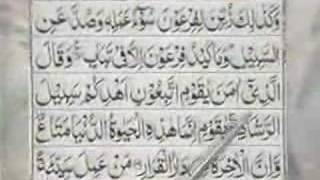 وَكَذٰلِكَ زُيِّنَ لِفِرْعَوْنَ سُوْٓءُ عَمَلِهٖ وَصُدَّ عَنِ
السَّبِيْلِ ؕ وَمَا كَيْدُ فِرْعَوْنَ اِلَّا فِيْ تَبَابٍ وَقَالَ
الَّذِيْۤ اٰمَنَ يٰقَوْمِ اتَّبِعُوْنِ اَهْدِكُمْ سَبِيْلَ
الرَّشَادِ يٰقَوْمِ اِنَّمَا هٰذِهِ الْحَيٰوةُ الدُّنْيَا مَتَاعٌ
وَّاِنَّ الْاٰخِرَةَ هِيَ دَارُ الْقَرَارِ مَنْ عَمِلَ سَيِّئَةً